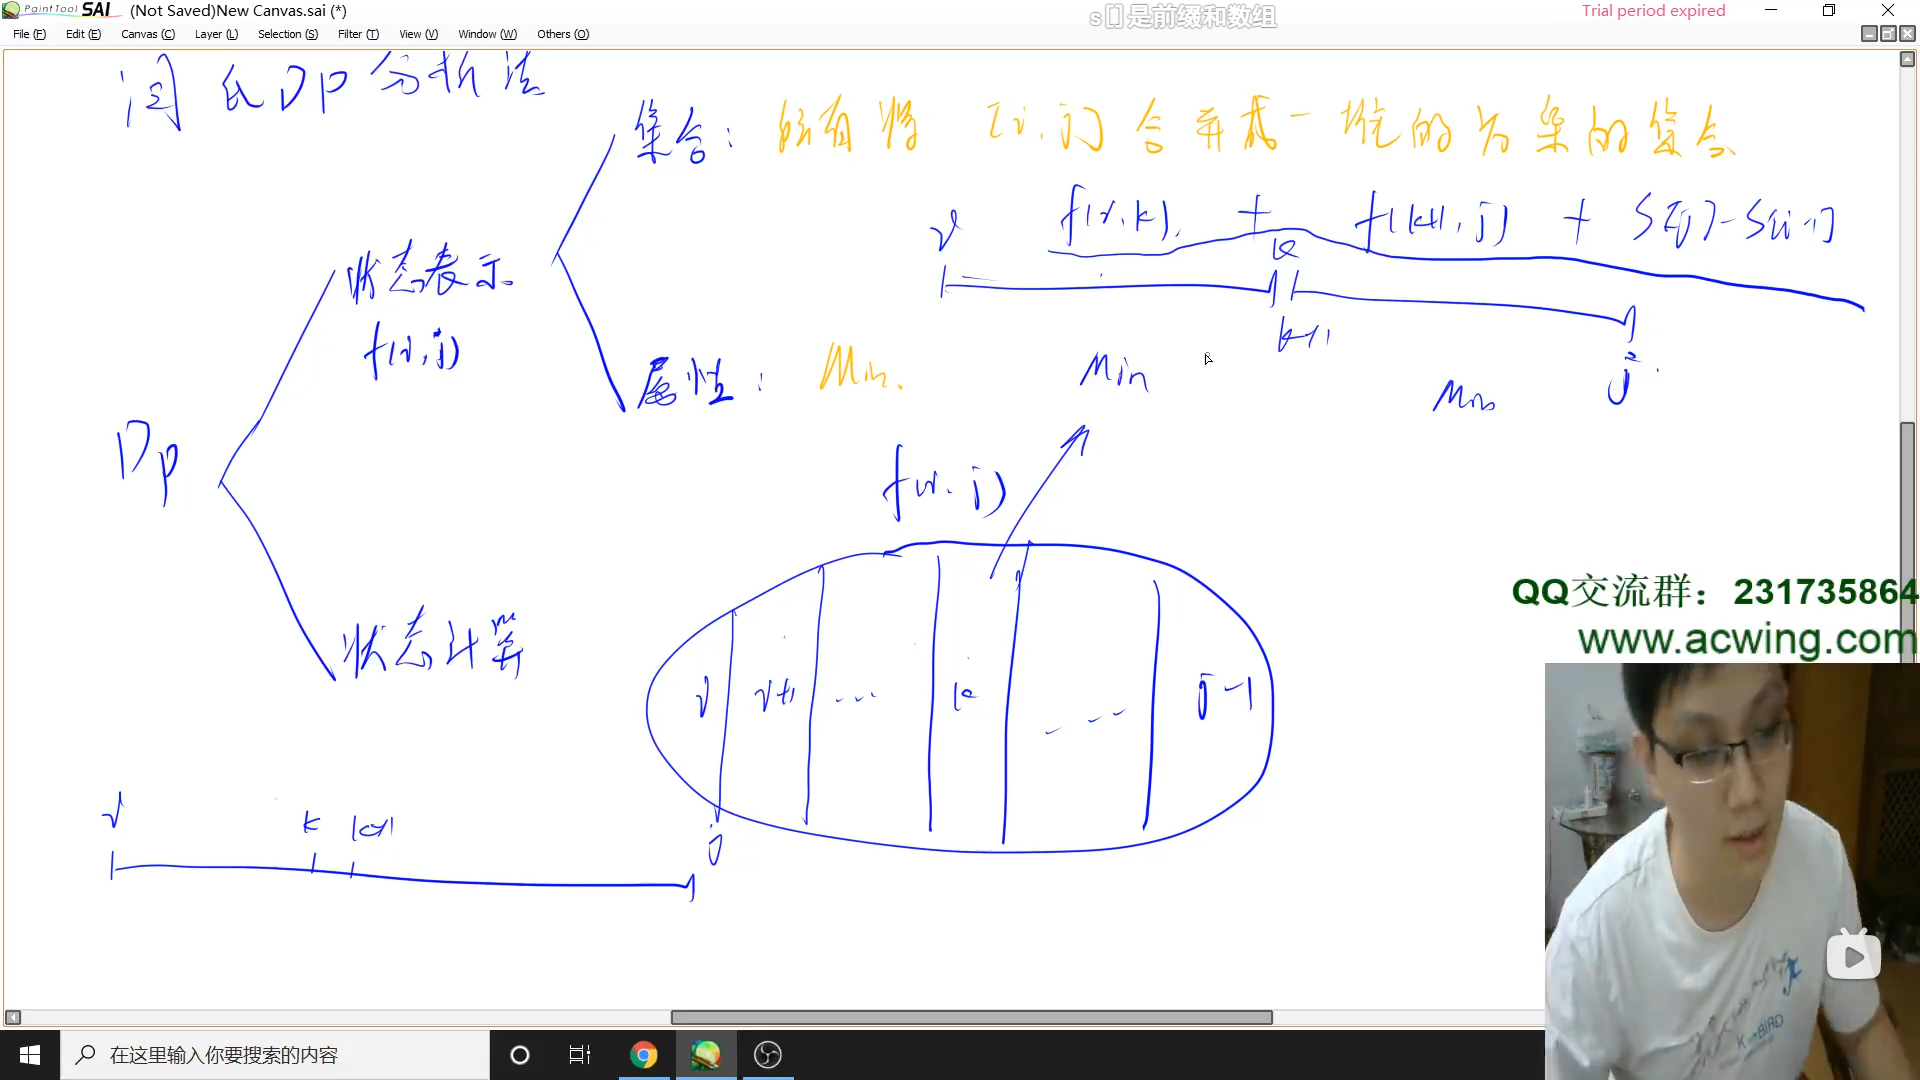 PaintTool SAI (Not Saved)New Canvas.sai (*)
s[]是前缀和数组
Trial period expired
File (F) Edit (E) Canvas (C) Layer (L) Selection (S) Filter (T) View (V) Window (W) Others (O)
闫氏DP分析法
集合: 所有将 [i,j] 合并成一堆的方案的集合
f(i,k) + f(k+1,j) + S[j]-S[i-1]
i k
k+1
j
状态表示
f(i,j)
属性: Min.
Min
Min
DP
f(i,j)
状态计算
i i+1 ... k ... j-1
i k k+1 j
QQ交流群:231735864
www.acwing.com
在这里输入你要搜索的内容